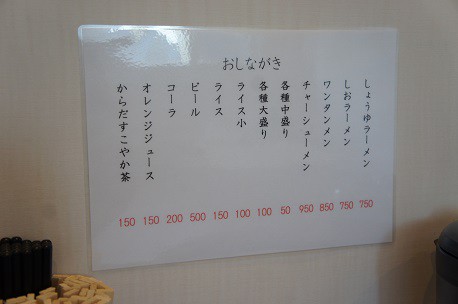 おしながき
しょうゆラーメン 750
しおラーメン 750
ワンタンメン 850
チャーシューメン 950
各種中盛り 50
各種大盛り 100
ライス小 100
ライス 150
ビール 500
コーラ 200
オレンジジュース 150
からだすこやか茶 150